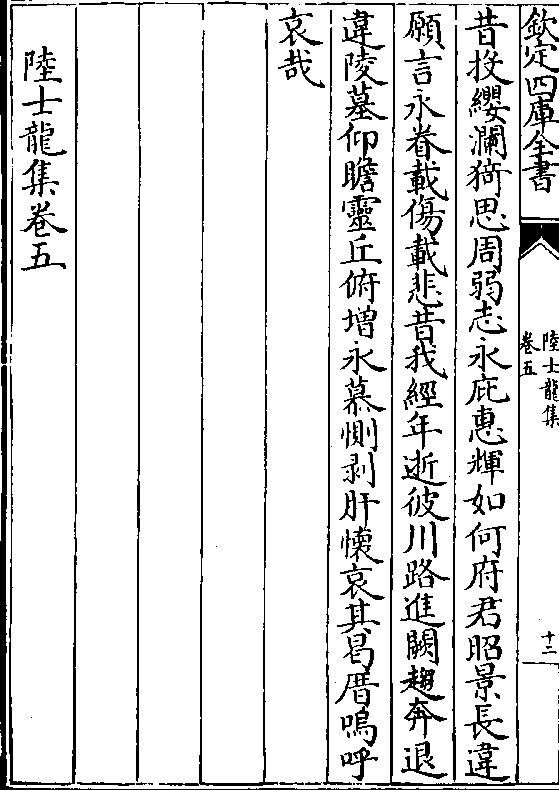 欽定四庫全書
陸士龍集
卷五
十二
昔投纓瀾猗思周弱志永庇惠輝如何府君昭景長違
願言永眷載傷載悲昔我經年逝彼川路進闕趨奔退
違陵墓仰瞻靈丘俯增永慕惻剥肝懐哀其曷厝嗚呼
哀哉
陸士龍集卷五